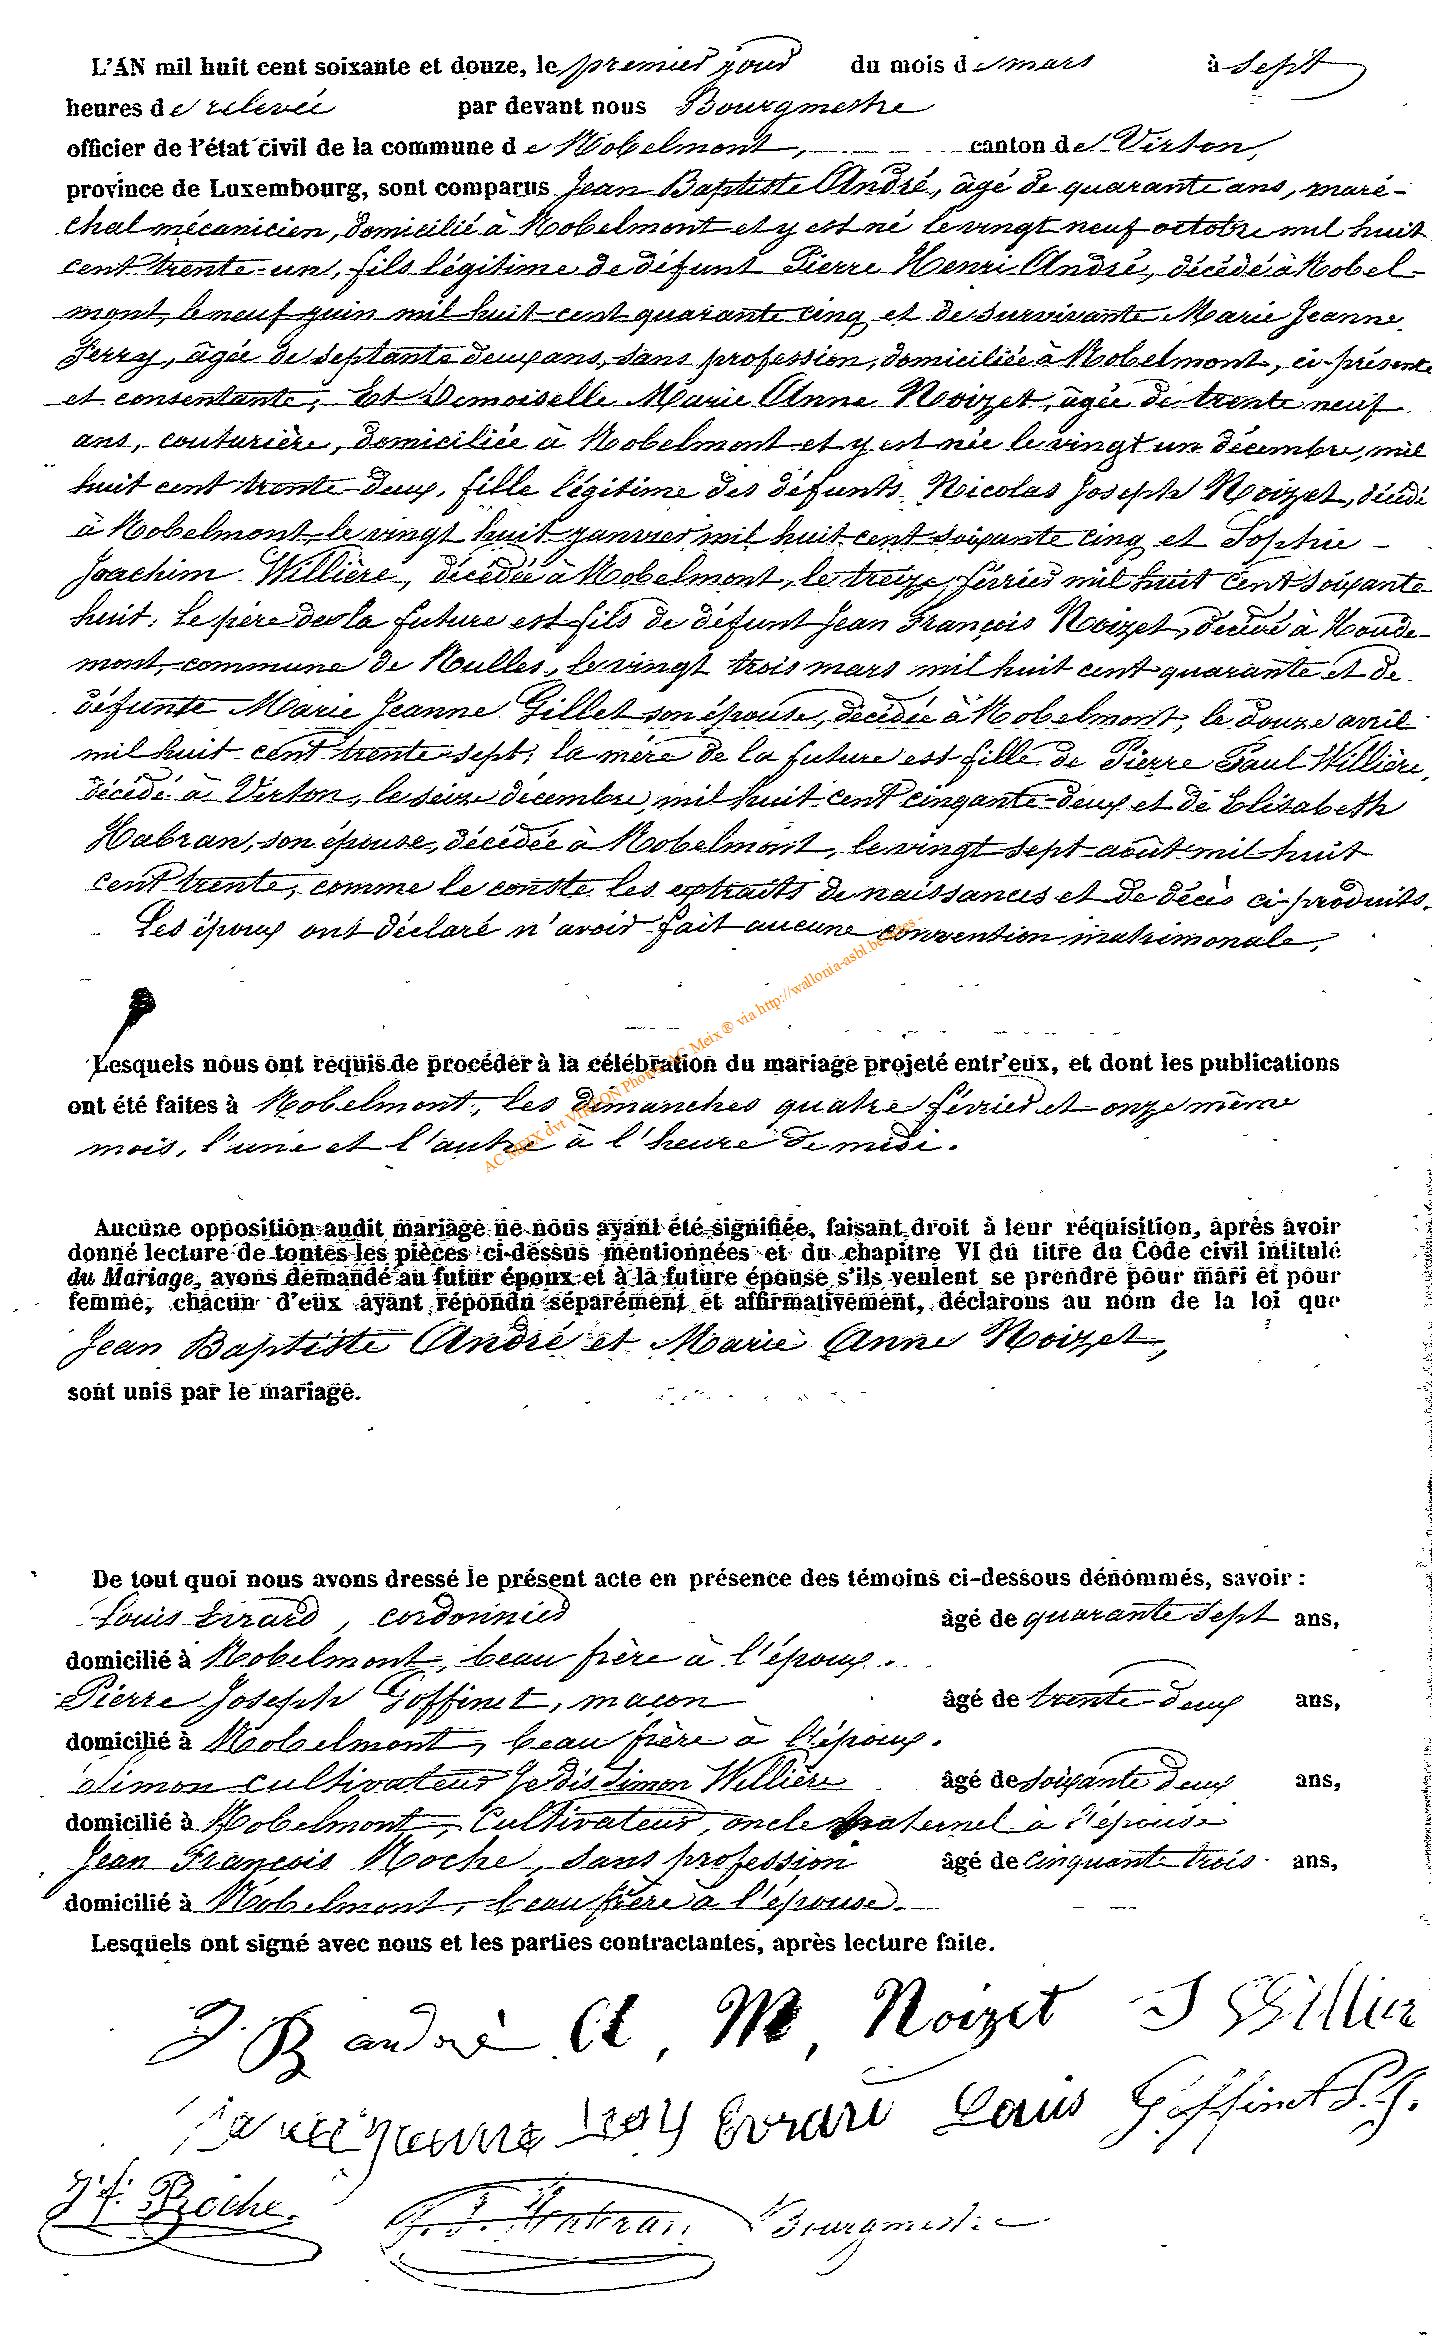 L'AN mil huit cent soixante et douze, le premier jour du mois de mars à sept
heures de relevée par devant nous Bourgmestre
officier de l'état civil de la commune de Robelmont, canton de Virton,
province de Luxembourg, sont comparus Jean Baptiste André, âgé de quarante ans, maré-
chal mécanicien, domicilié à Robelmont et y est né le vingt neuf octobre mil huit
cent trente-un, fils légitime de défunt Pierre Henri André, décédé à Robel-
mont, le neuf juin mil huit cent quarante cinq et de survivante Marie Jeanne
Ferry, âgée de septante deux ans, sans profession, domiciliée à Robelmont, ci-présente
et consentante; Et Demoiselle Marie Anne Noizet, âgée de trente neuf
ans, couturière, domiciliée à Robelmont et y est née le vingt un décembre, mil
huit cent trente-deux, fille légitime des défunts Nicolas Joseph Noizet, décédé
à Robelmont, le vingt huit janvier mil huit cent soixante cinq et Sophie
Joachim Willière, décédée à Robelmont, le treize février mil huit cent soixante
huit. Le père de la future est fils de défunt Jean François Noizet, décédé à Houde-
mont, commune de Rulles, le vingt trois mars mil huit cent quarante et de
défunte Marie Jeanne Gillet son épouse, décédée à Robelmont, le douze avril
mil huit cent trente sept; la mère de la future est fille de Pierre Paul Willière,
décédé à Virton, le seize décembre, mil huit cent cinquante-deux et de Elisabeth
Habran, son épouse, décédée à Robelmont, le vingt sept août mil huit
cent trente, comme le conste les extraits de naissances et de décès ci-produits.
Les époux ont déclaré n'avoir fait aucune convention matrimonale.
Lesquels nous ont requis de procéder à la célébration du mariage projeté entr'eux, et dont les publications
ont été faites à Robelmont, les dimanches quatre février et onze même
mois, l'une et l'autre à l'heure de midi.
AC MEIX dvt VIRTON Photos AC Meix ® via http://wallonia-asbl.be
Aucune opposition audit mariage ne nous ayant été signifiée, faisant droit à leur réquisition, après avoir
donné lecture de toutes les pièces ci-dessus mentionnées et du chapitre VI du titre du Code civil intitulé
du Mariage, avons demandé au futur époux et à la future épouse s'ils veulent se prendre pour mari et pour
femme, chacun d'eux ayant répondu séparément et affirmativement, déclarons au nom de la loi que
Jean Baptiste André et Marie Anne Noizet,
sont unis par le mariage.
De tout quoi nous avons dressé le présent acte en présence des témoins ci-dessous dénommés, savoir :
Louis Evrard, cordonnier âgé de quarante sept ans,
domicilié à Robelmont, beau frère à l'époux.
Pierre Joseph Goffinet, maçon âgé de trente-deux ans,
domicilié à Robelmont, beau frère à l'époux.
Simon cultivateur Je dis Simon Willière âgé de soixante deux ans,
domicilié à Robelmont, Cultivateur, oncle maternel à l'épouse
Jean François Roche, sans profession âgé de cinquante trois ans,
domicilié à Robelmont, beau frère à l'épouse.
Lesquels ont signé avec nous et les parties contractantes, après lecture faite.
J. B andré A, M, Noizet S Willier
Evrard Louis Goffinet P. J.
J f. Roche. Bourgmestre